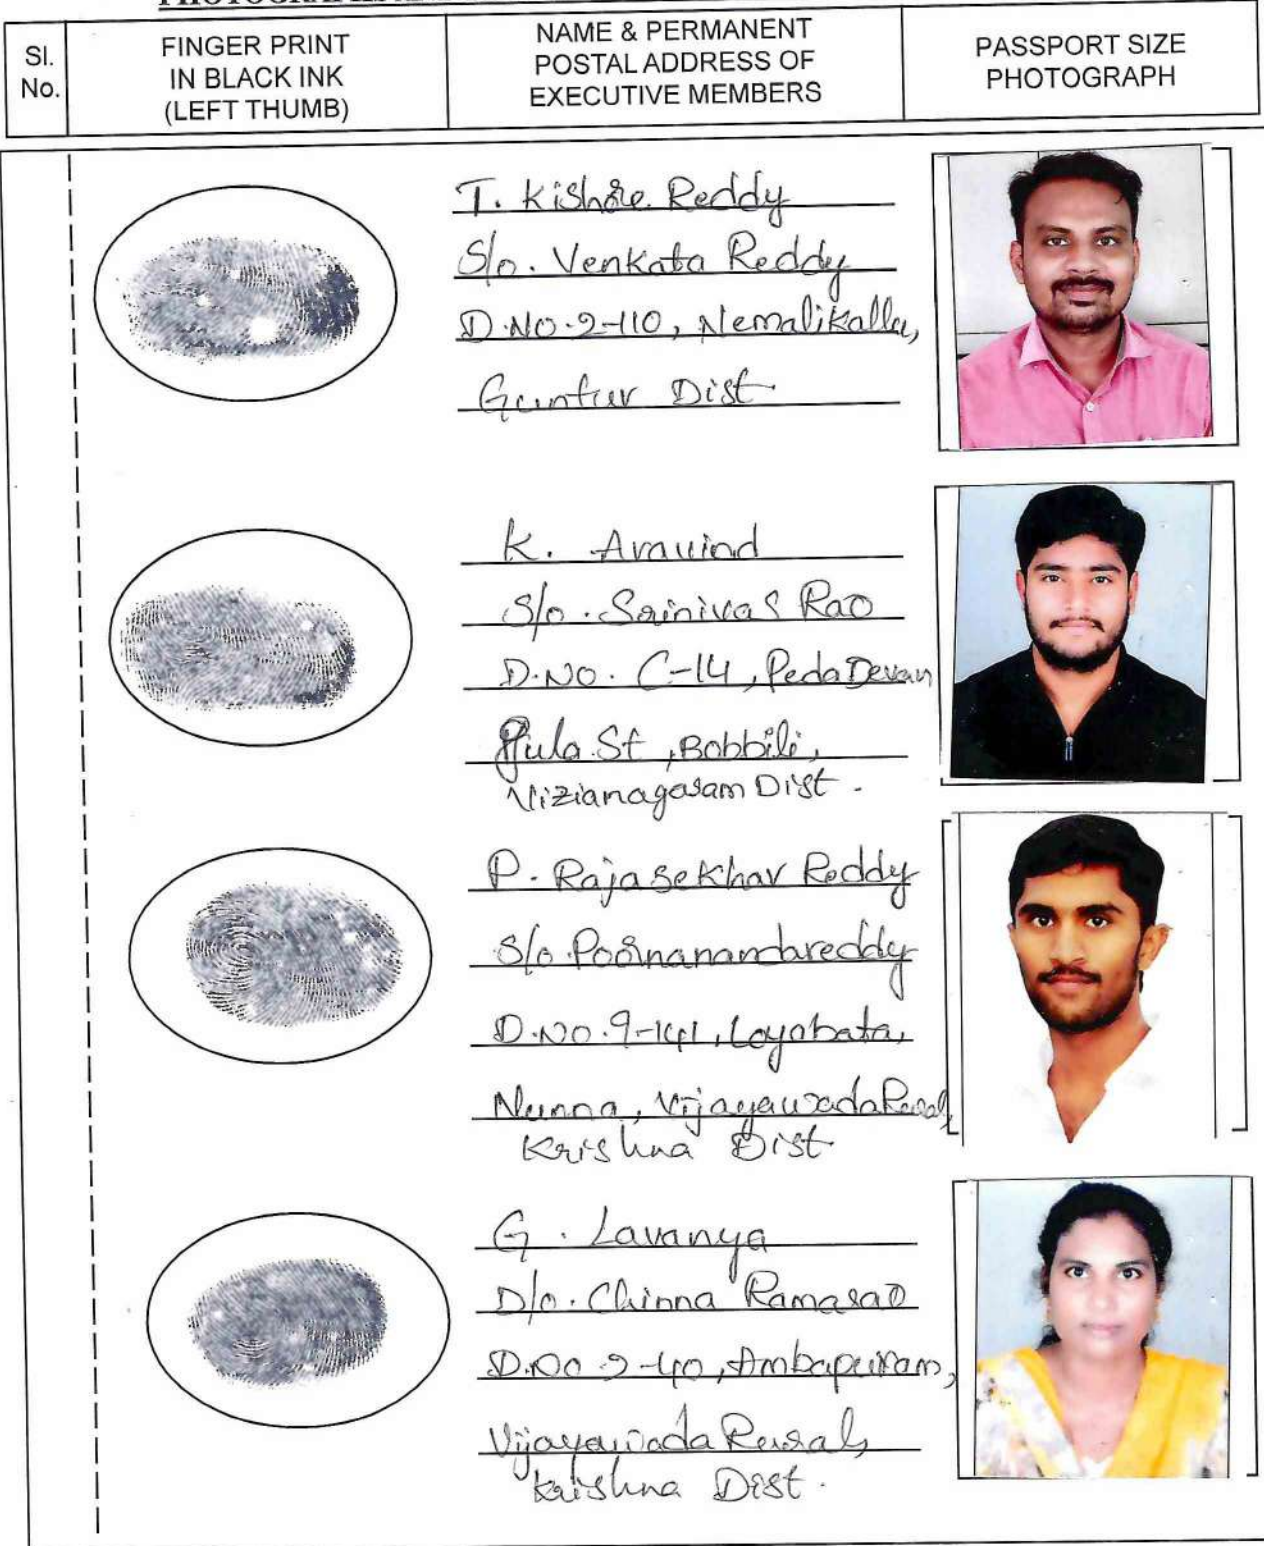 Sl.
No.
FINGER PRINT
IN BLACK INK
(LEFT THUMB)
NAME & PERMANENT
POSTAL ADDRESS OF
EXECUTIVE MEMBERS
PASSPORT SIZE
PHOTOGRAPH
T. Kishore Reddy
S/o. Venkata Reddy
D.NO.2-110, Nemalikallu,
Guntur Dist
K. Aravind
S/o. Srinivas Rao
D.NO. C-14, Peda Devan
St, Bobbili,
Vizianagaram Dist.
P. Rajasekhar Reddy
S/o Poornanandareddy
D.NO.9-141,
Nunna, Vijayawada Rural,
Krishna Dist
G. Lavanya
D/o. Chinna Ramarao
D.NO 2-40, Ambapuram,
Vijayawada Rural,
Krishna Dist.